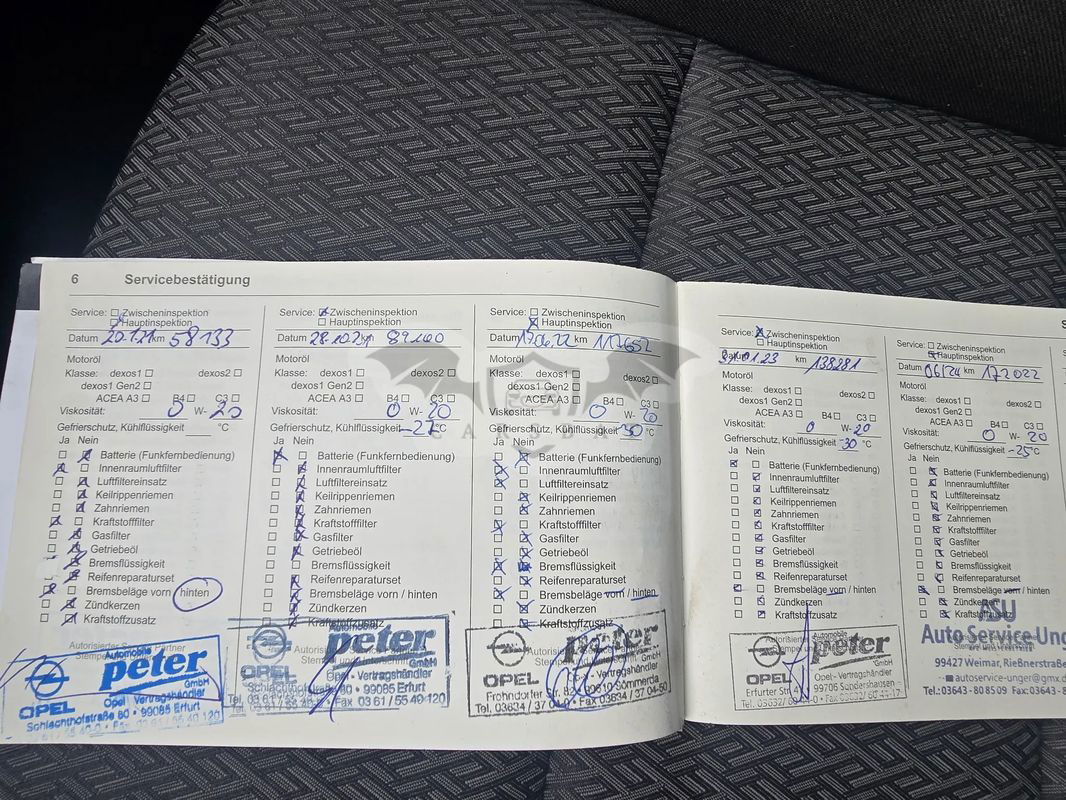 6 Servicebestätigung
Service: Zwischeninspektion
Hauptinspektion
Datum 20.1.21 km 58133
Motoröl
Klasse: dexos1 dexos2
dexos1 Gen2
ACEA A3 B4 C3
Viskosität: 0 W- 20
Gefrierschutz, Kühlflüssigkeit °C
Ja Nein
Batterie (Funkfernbedienung)
Innenraumluftfilter
Luftfiltereinsatz
Keilrippenriemen
Zahnriemen
Kraftstofffilter
Gasfilter
Getriebeöl
Bremsflüssigkeit
Reifenreparaturset
Bremsbeläge vorn / hinten
Zündkerzen
Kraftstoffzusatz
Automobile
peter
GmbH
OPEL
Opel - Vertragshändler
Schlachthofstraße 80 • 99085 Erfurt
Service: Zwischeninspektion
Hauptinspektion
Datum 28.10.21 km 89100
Motoröl
Klasse: dexos1 dexos2
dexos1 Gen2
ACEA A3 B4 C3
Viskosität: 0 W- 20
Gefrierschutz, Kühlflüssigkeit -27 °C
Ja Nein
Batterie (Funkfernbedienung)
Innenraumluftfilter
Luftfiltereinsatz
Keilrippenriemen
Zahnriemen
Kraftstofffilter
Gasfilter
Getriebeöl
Bremsflüssigkeit
Reifenreparaturset
Bremsbeläge vorn / hinten
Zündkerzen
Kraftstoffzusatz
Automobile
peter
GmbH
OPEL
Opel - Vertragshändler
Schlachthofstraße 80 • 99085 Erfurt
Tel. 03 61 / 55 40-0 • Fax 03 61 / 55 40 120
Service: Zwischeninspektion
Hauptinspektion
Datum km 117652
Motoröl
Klasse: dexos1 dexos2
dexos1 Gen2
ACEA A3 B4 C3
Viskosität: 0 W- 20
Gefrierschutz, Kühlflüssigkeit -30 °C
Ja Nein
Batterie (Funkfernbedienung)
Innenraumluftfilter
Luftfiltereinsatz
Keilrippenriemen
Zahnriemen
Kraftstofffilter
Gasfilter
Getriebeöl
Bremsflüssigkeit
Reifenreparaturset
Bremsbeläge vorn / hinten
Zündkerzen
Kraftstoffzusatz
peter
GmbH
OPEL
Opel - Vertragshändler
Frohndorfer Str. 99610 Sömmerda
Tel. 03634 / Fax 03634 / 37 04-50
Service: Zwischeninspektion
Hauptinspektion
Datum 01.23 km 138281
Motoröl
Klasse: dexos1 dexos2
dexos1 Gen2
ACEA A3 B4 C3
Viskosität: 0 W- 20
Gefrierschutz, Kühlflüssigkeit -30 °C
Ja Nein
Batterie (Funkfernbedienung)
Innenraumluftfilter
Luftfiltereinsatz
Keilrippenriemen
Zahnriemen
Kraftstofffilter
Gasfilter
Getriebeöl
Bremsflüssigkeit
Reifenreparaturset
Bremsbeläge vorn / hinten
Zündkerzen
Kraftstoffzusatz
Automobile
peter
GmbH
OPEL
Opel - Vertragshändler
Erfurter Str. 99706 Sondershausen
Service: Zwischeninspektion
Hauptinspektion
Datum 06/24 km 172022
Motoröl
Klasse: dexos1 dexos2
dexos1 Gen2
ACEA A3 B4 C3
Viskosität: 0 W- 20
Gefrierschutz, Kühlflüssigkeit -25 °C
Ja Nein
Batterie (Funkfernbedienung)
Innenraumluftfilter
Luftfiltereinsatz
Keilrippenriemen
Zahnriemen
Kraftstofffilter
Gasfilter
Getriebeöl
Bremsflüssigkeit
Reifenreparaturset
Bremsbeläge vorn / hinten
Zündkerzen
Kraftstoffzusatz
ASU
Auto Service Ung
99427 Weimar, Rießnerstraße
autoservice-unger@gmx.d
Tel.: 03643 - 80 85 09 Fax: 03643 - 8